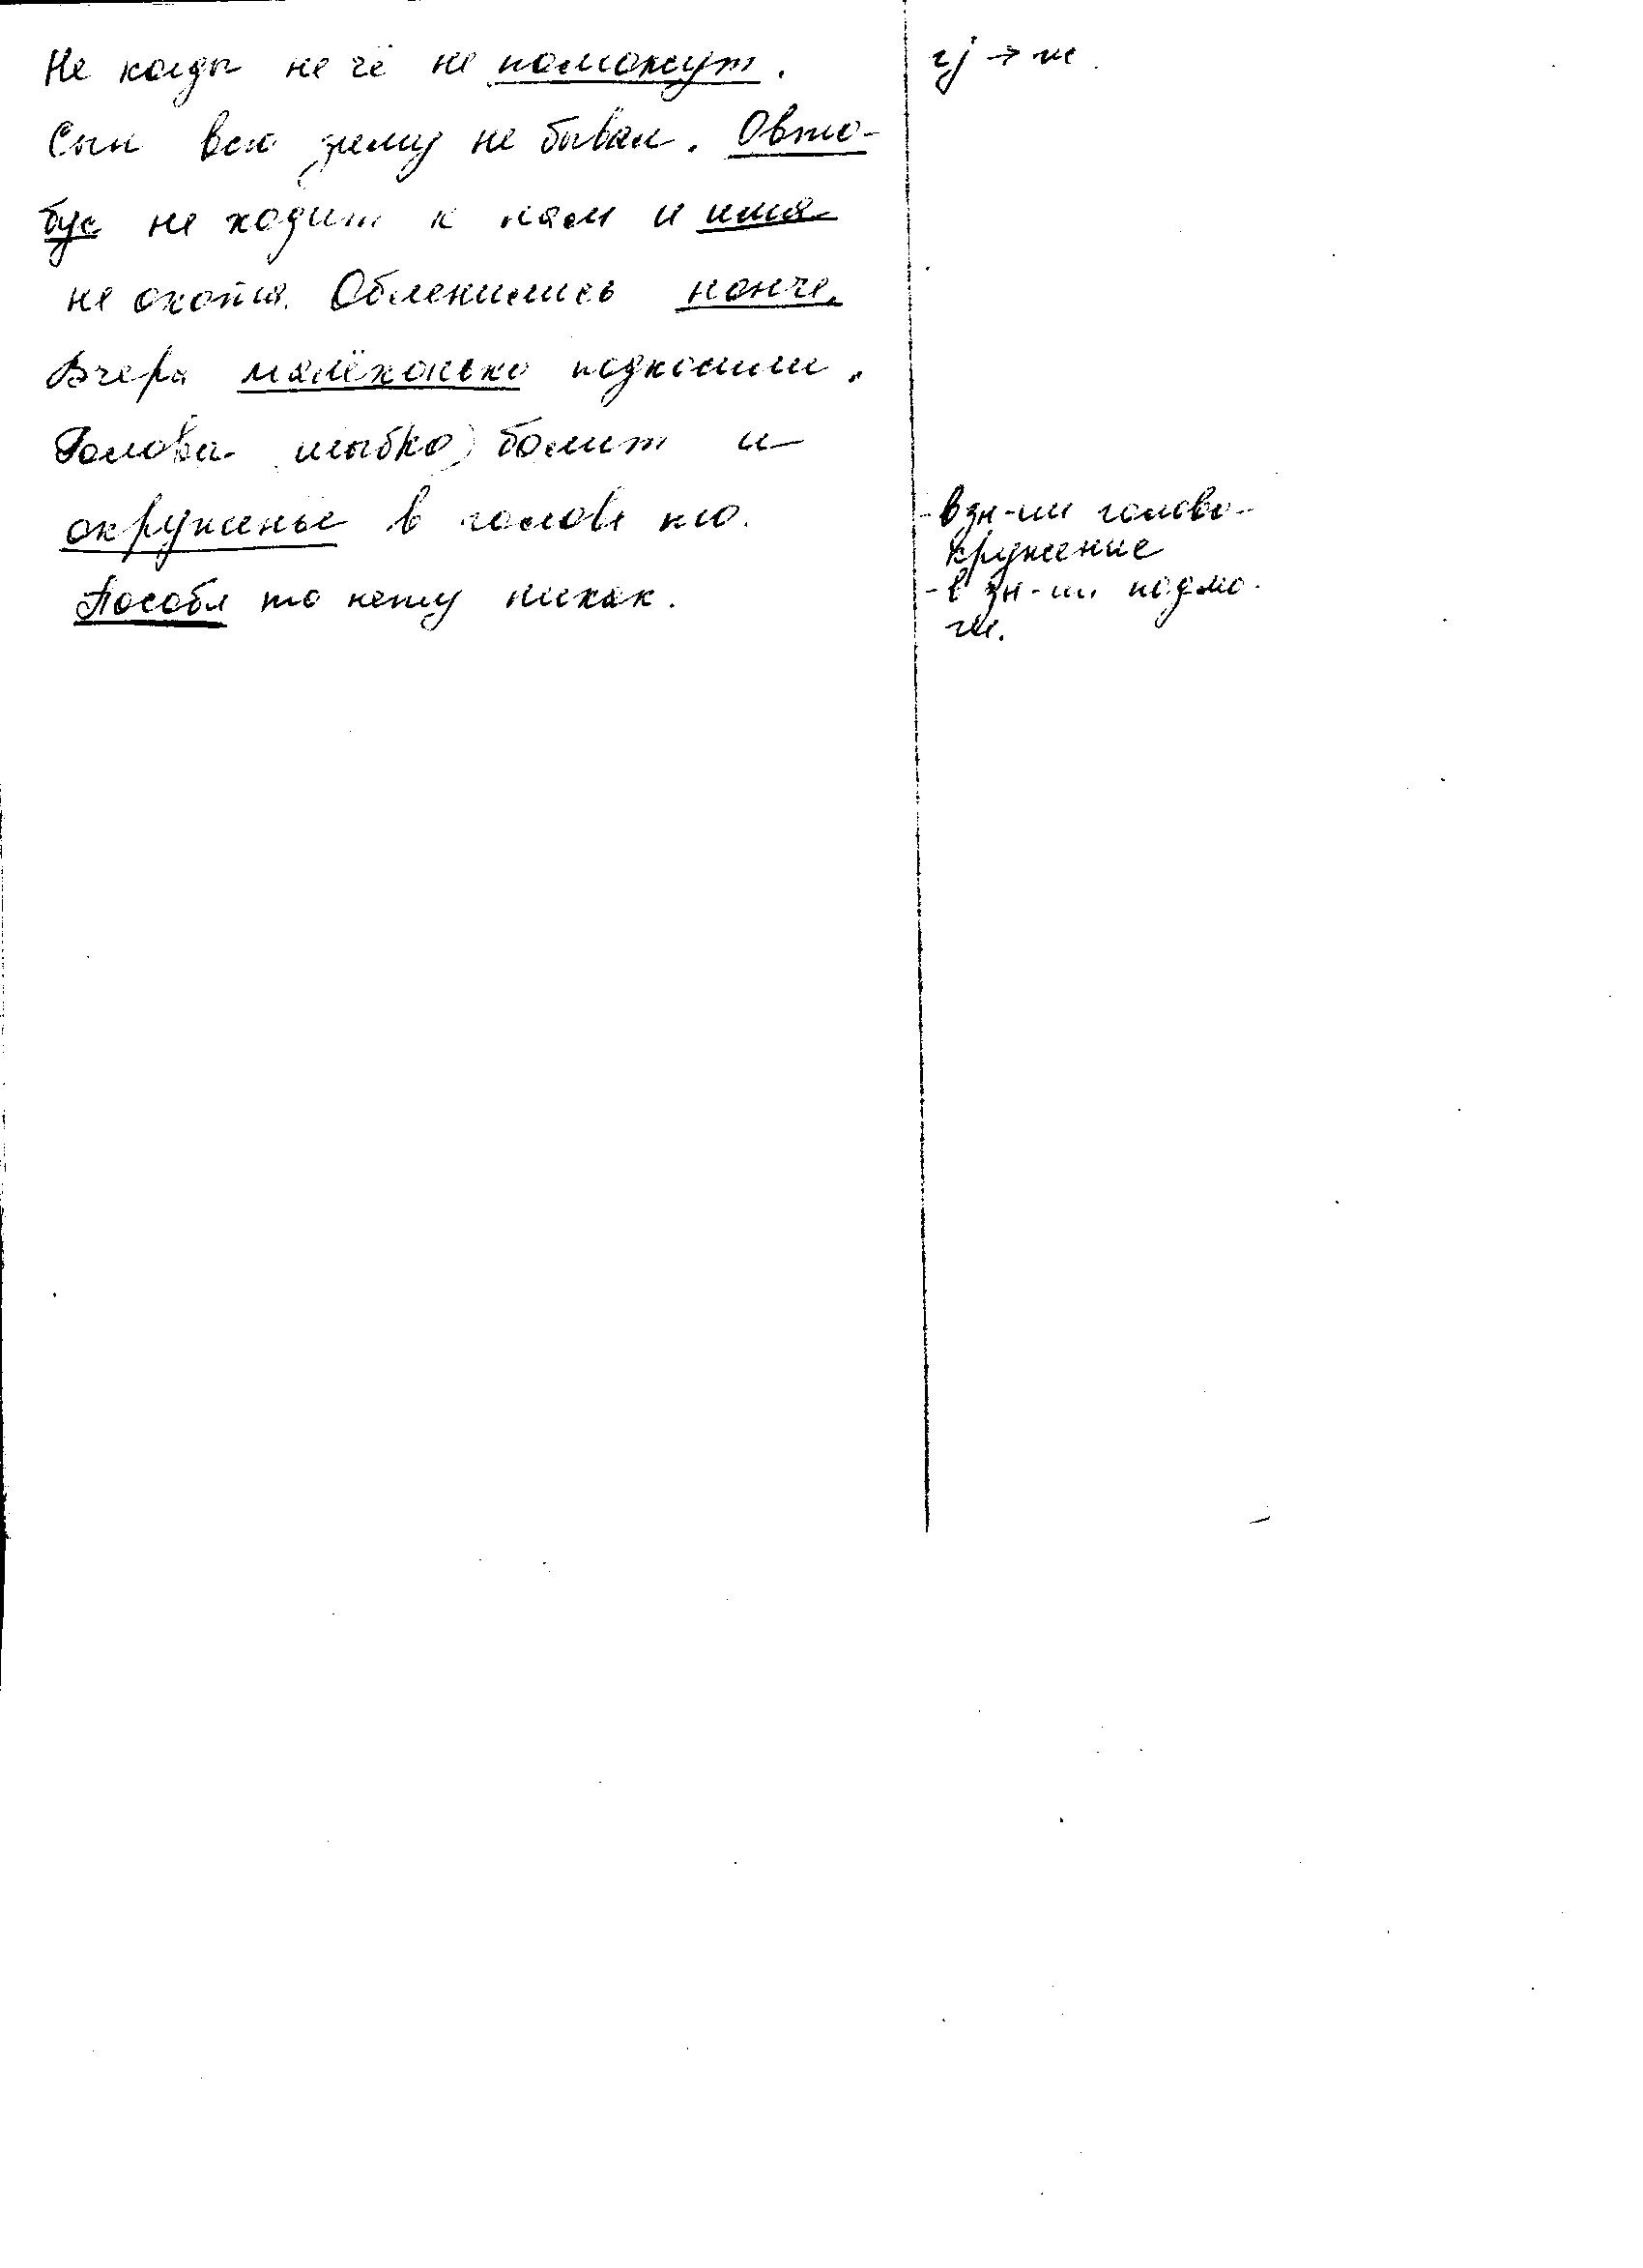 Не когды не чё не поможут.
Сын всю зиму не бывал. Овто-
бус не ходит к нам и има
не охота. Обленились нонче.
Вчера малёхонько подкосили.
Голова шыбко болит и
окруженье в голове
Пособл то нету никак.
гj → ж.
- в зн-ии голово-
кружение
- в зн-ии подмо-
ги.